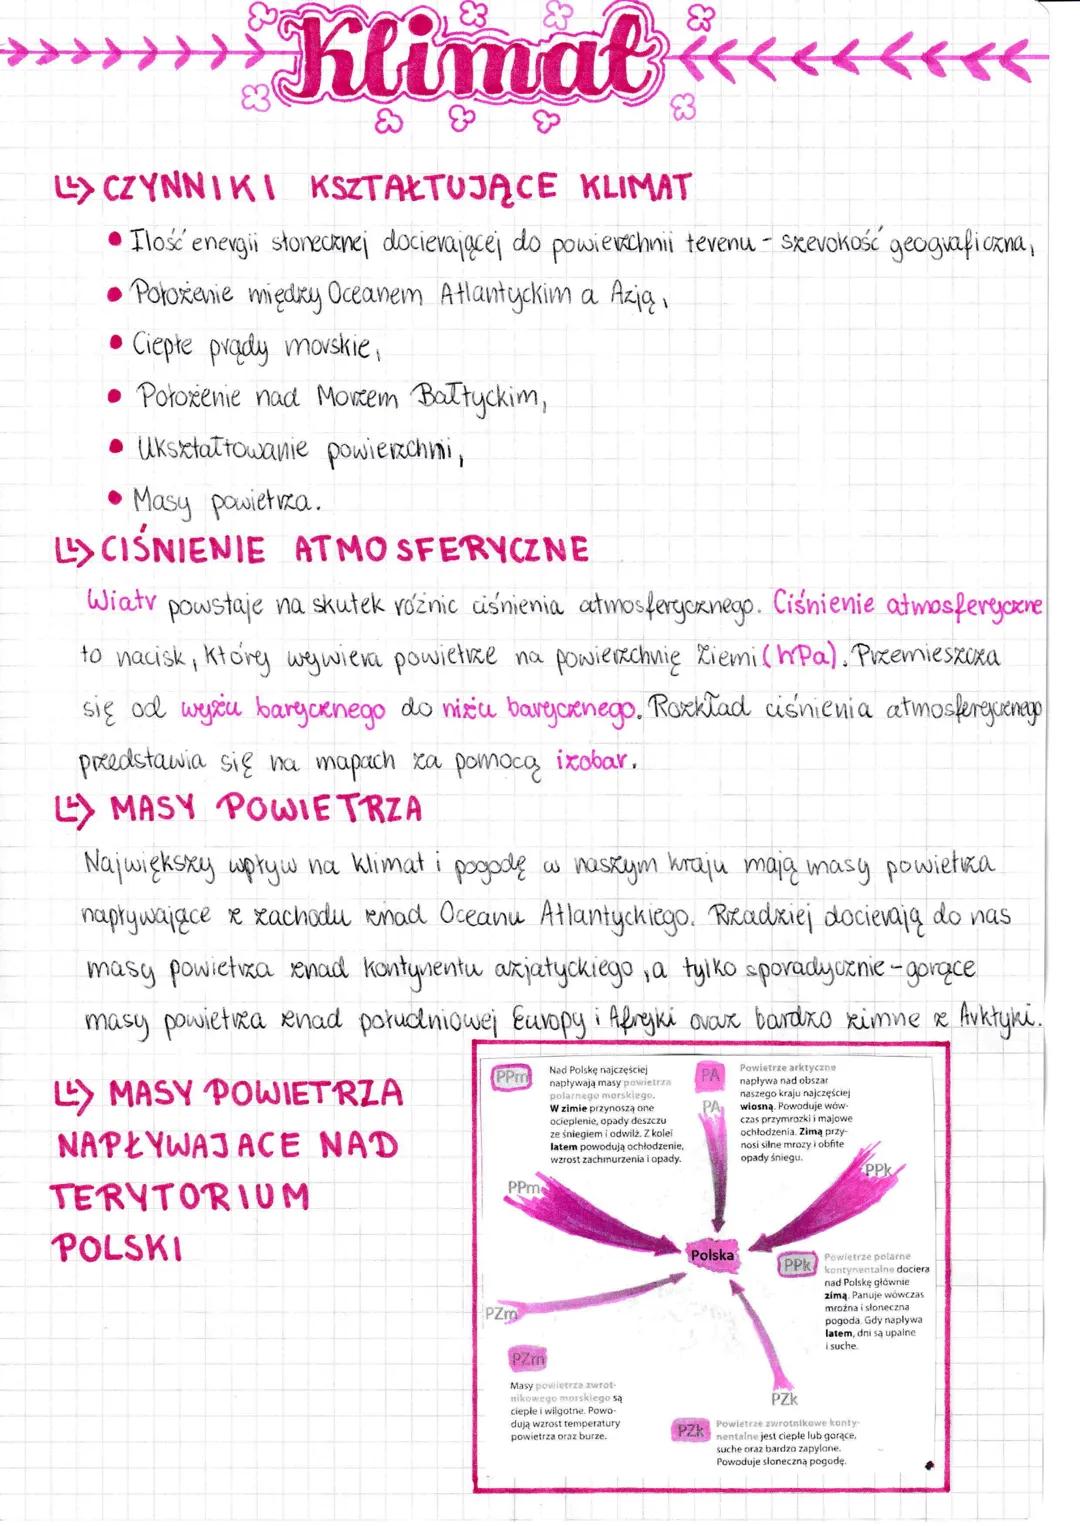 Klimat
CZYNNIKI KSZTAŁTUJĄCE KLIMAT
• Ilość energii słonecznej docierającej do powierzchnii terenu - szerokość geograficzna,
• Położenie między Oceanem Atlantyckim a Azją,
• Ciepłe prądy morskie,
• Położenie nad Morzem Bałtyckim,
• Ukształtowanie powierzchni,
• Masy powietrza.
CIŚNIENIE ATMOSFERYCZNE
Wiatr powstaje na skutek różnic ciśnienia atmosferycznego. Ciśnienie atmosferyczne
to nacisk, który wywiera powietrze na powierzchnię Ziemi (hPa). Przemieszcza
się od wyżu barycznego do niżu barycznego. Rozkład ciśnienia atmosferycznego
przedstawia się na mapach za pomocą izobar.
MASY POWIETRZA
Największy wpływ na klimat i pogodę w naszym kraju mają masy powietrza
napływające z zachodu znad Oceanu Atlantyckiego. Rzadziej docierają do nas
masy powietrza znad kontynentu azjatyckiego, a tylko sporadycznie - gorące
masy powietrza znad południowej Europy i Afryki oraz bardzo zimne z Arktyki.
MASY POWIETRZA
NAPŁYWAJACE NAD
TERYTORIUM
POLSKI
PPm
Nad Polskę najczęściej
napływają masy powietrza
polarnego morskiego.
W zimie przynoszą one
ocieplenie, opady deszczu
ze śniegiem i odwilż. Z kolei
latem powodują ochłodzenie,
wzrost zachmurzenia i opady.
PA
Powietrze arktyczne
napływa nad obszar
naszego kraju najczęściej
wiosną. Powoduje wów-
czas przymrozki i majowe
ochłodzenia. Zimą przy-
nosi silne mrozy i obfite
opady śniegu.
PA
PPm
PPk
Polska
PPk
Powietrze polarne
kontynentalne dociera
nad Polskę głównie
zimą. Panuje wówczas
mroźna i słoneczna
pogoda. Gdy napływa
latem, dni są upalne
i suche.
PZm
PZm
Masy powietrza zwrot-
nikowego morskiego są
ciepłe i wilgotne. Powo-
dują wzrost temperatury
powietrza oraz burze.
PZk
PZk
Powietrze zwrotnikowe konty-
nentalne jest ciepłe lub gorące,
suche oraz bardzo zapylone.
Powoduje słoneczną pogodę.